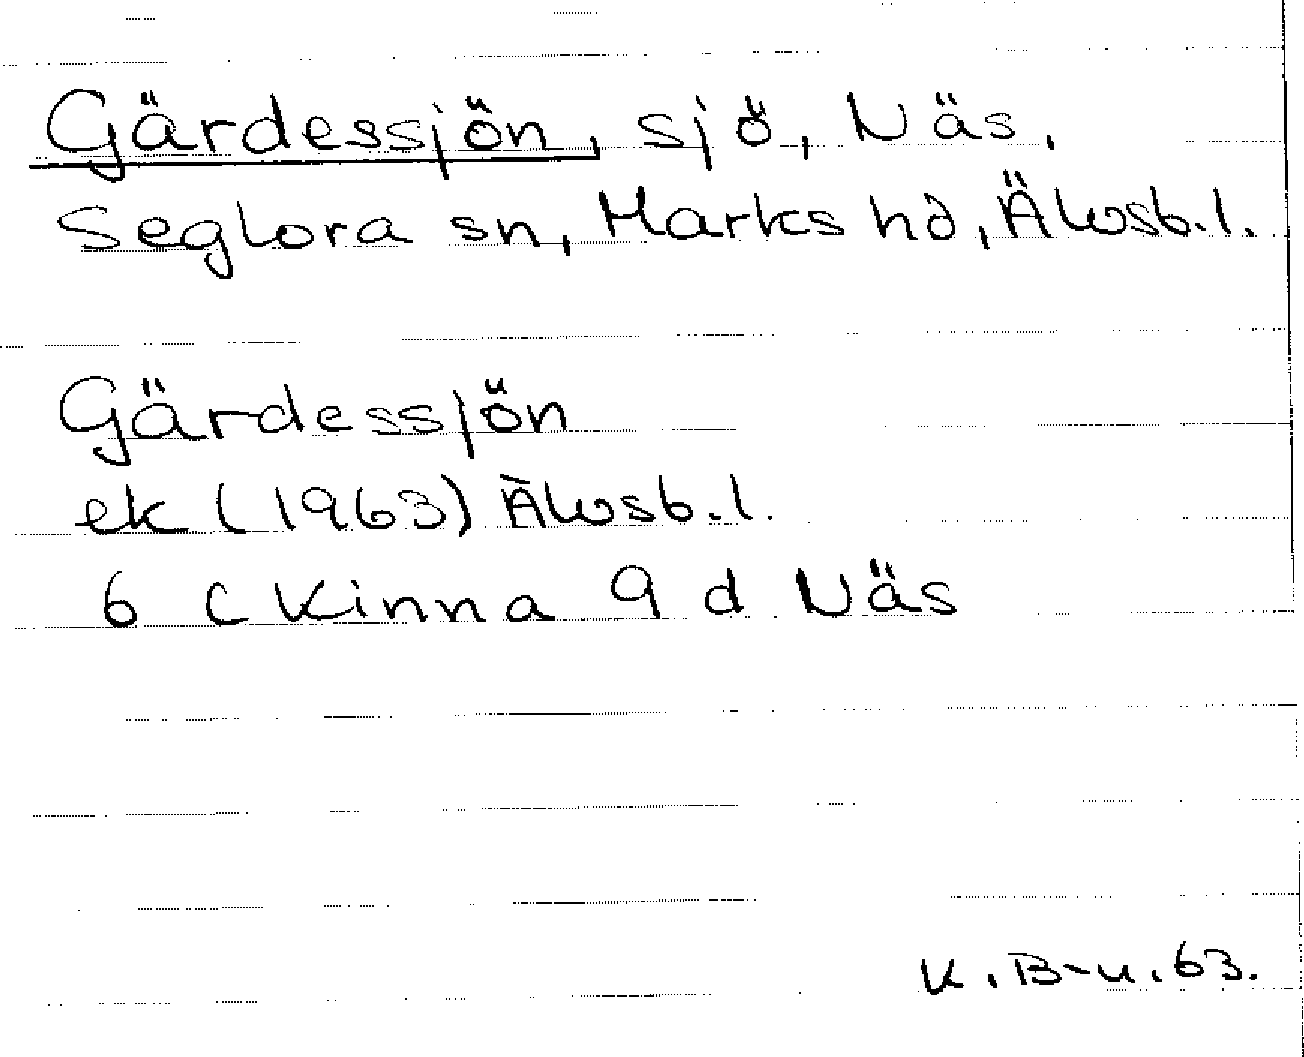 Gärdessjön, sjö, Näs,
Seglora sn, Marks hd, Älvsb.l.
Gärdessjön
ek (1963) Älvsb.l.
6 C Kinna 9 d Näs
K.B-n.63.